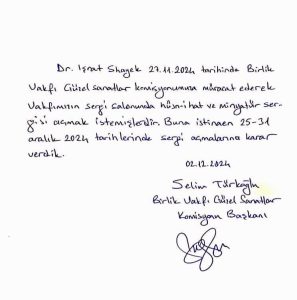 Dr. Işrat Shayek 27.11.2024 tarihinde Birlik
Vakfı Güzel sanatlar komisyonumuza müracat ederek
Vakfımızın sergi salonunda hüsn-i hat ve minyatür ser-
gisi açmak istemişlerdir. Buna istinaen 25-31
aralık 2024 tarihlerinde sergi açmalarına karar
verdik.
02.12.2024
Selim Türkoğlu
Birlik Vakfı Güzel Sanatlar
Komisyon Başkanı